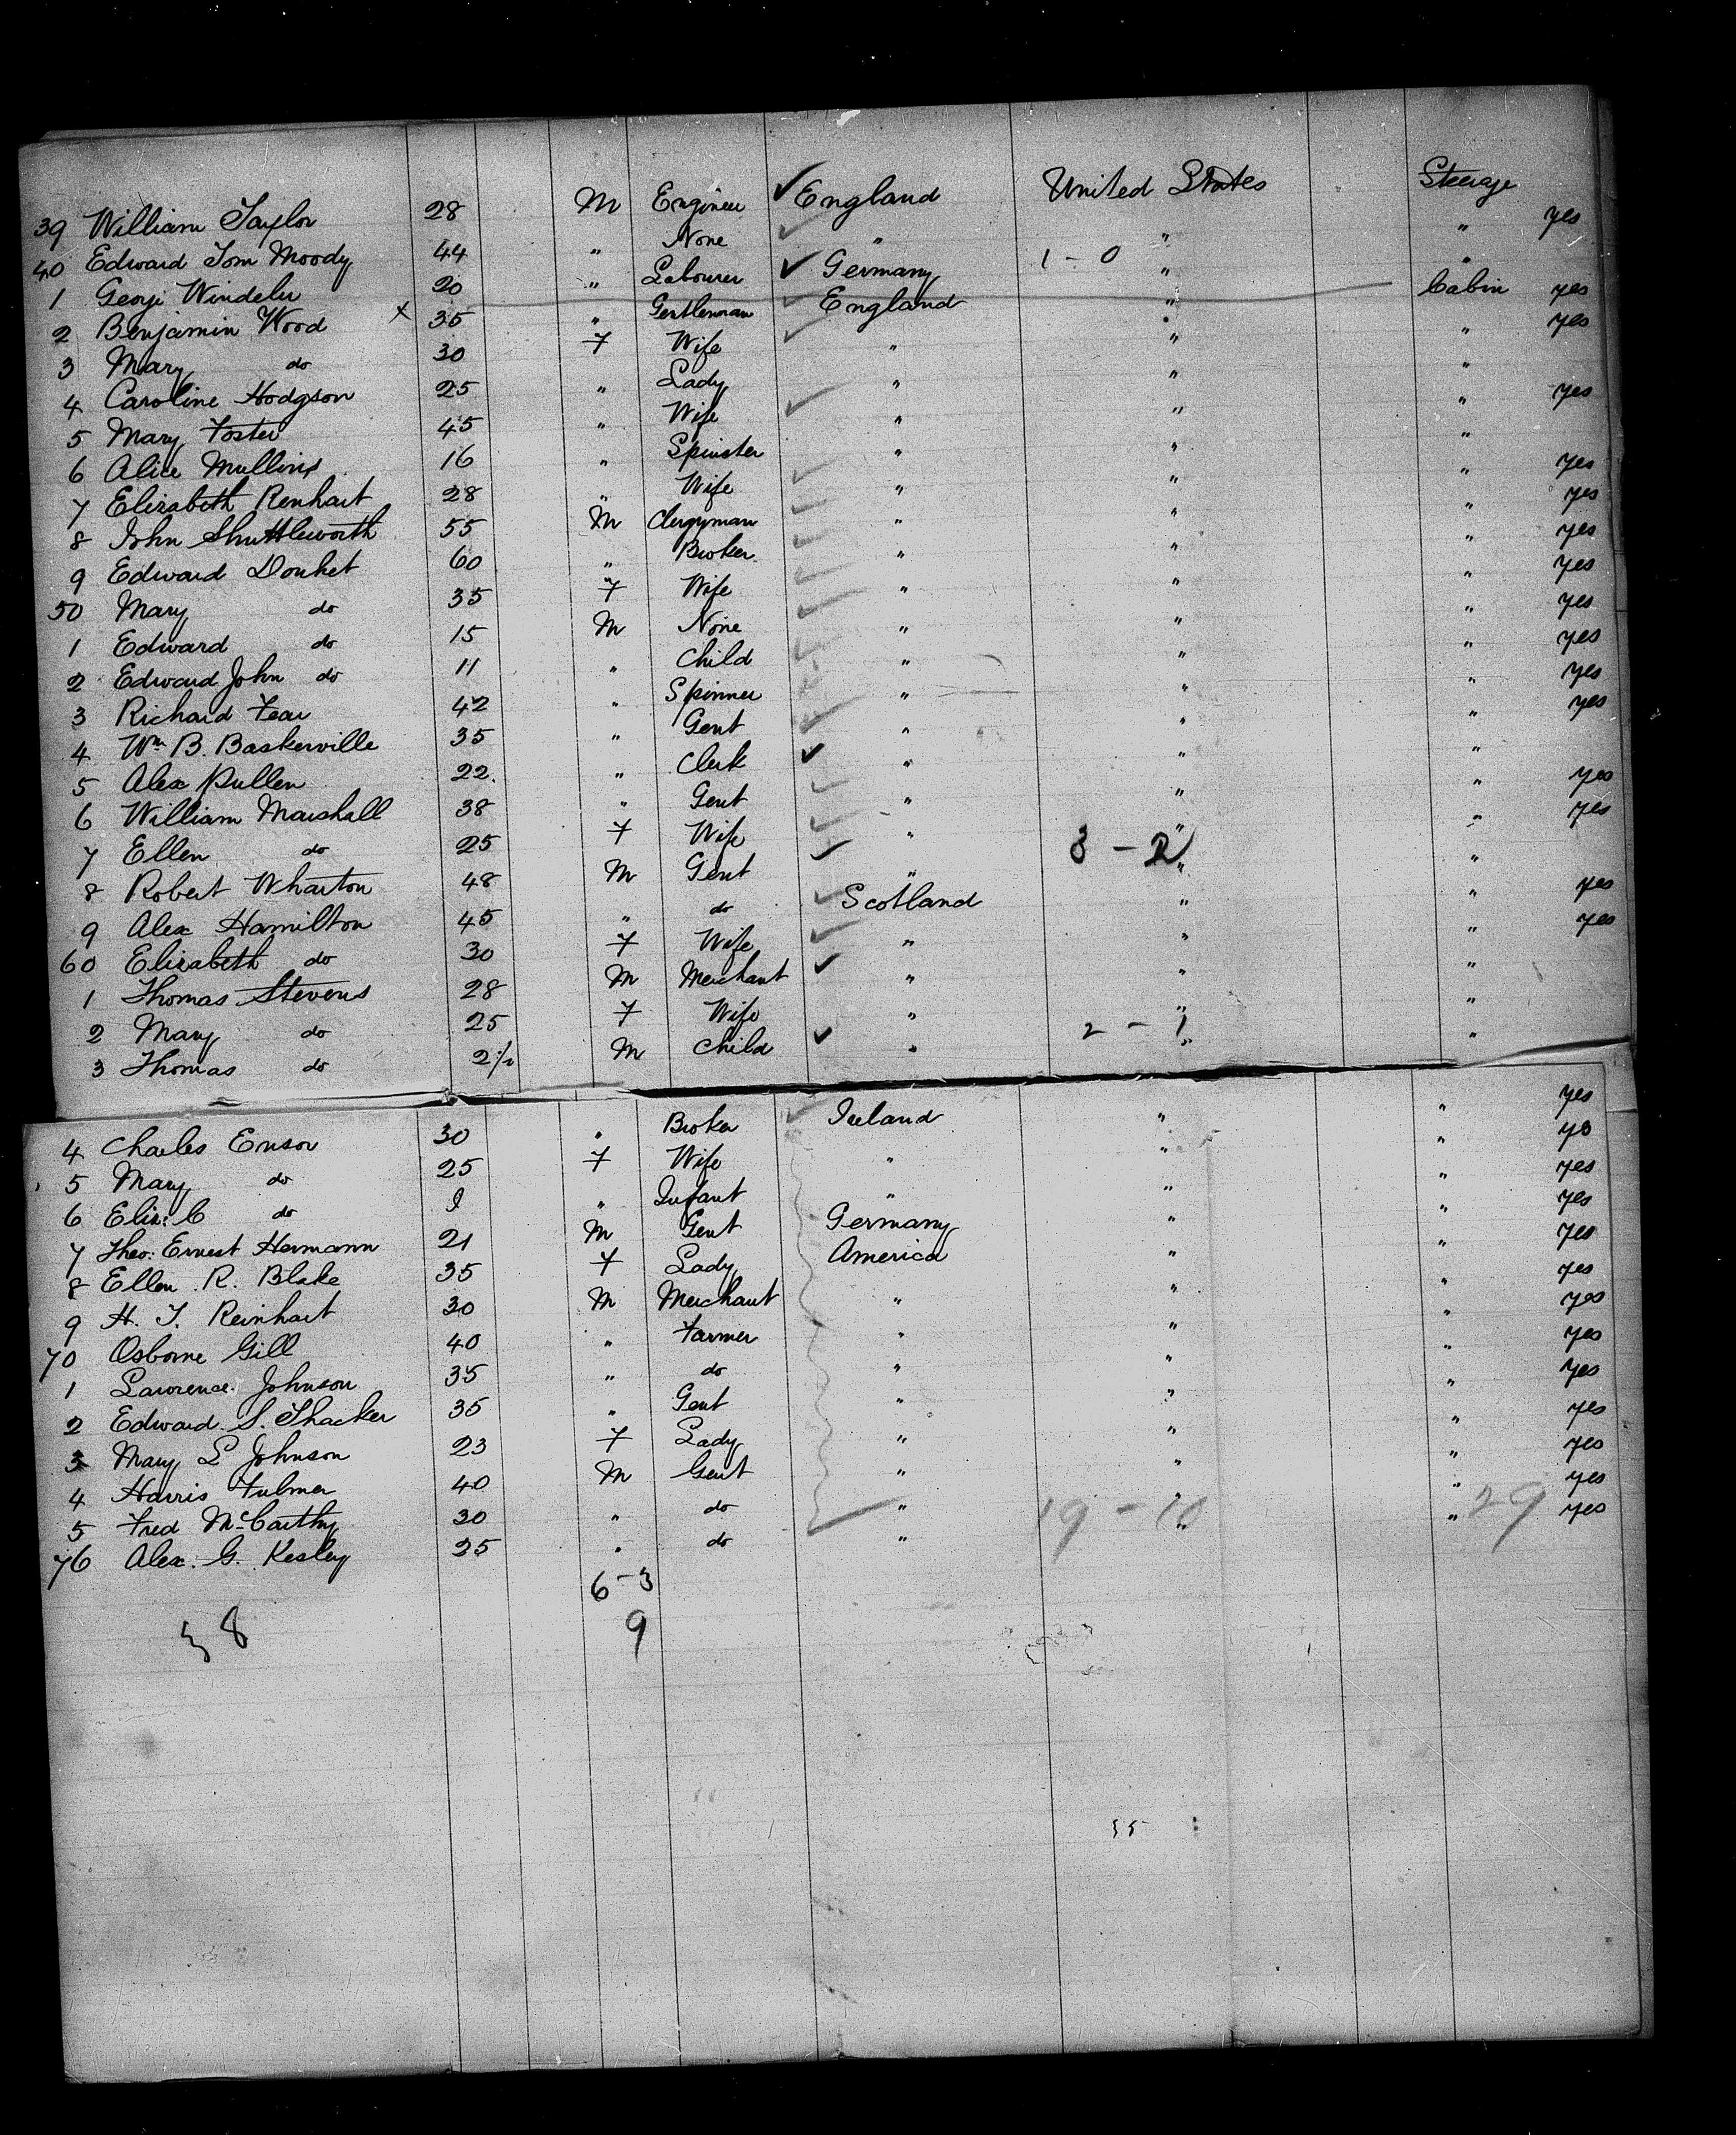 39 William Taylor 28 M Engineer England United States Steerage yes
40 Edward Tom Moody 44 " None " " "
1 George Windeler 20 " Labourer Germany 1 - 0 " "
2 Benjamin Wood x 35 " Gentleman England " Cabin yes
3 Mary do 30 F Wife " " " yes
4 Caroline Hodgson 25 " Lady " " "
5 Mary Foster 45 " Wife " " " yes
6 Alice Mullins 16 " Spinster " " "
7 Elizabeth Renhart 28 " Wife " " " yes
8 John Shuttleworth 55 M Clergyman " " " yes
9 Edward Douhet 60 " Broker " " " yes
50 Mary do 35 F Wife " " " yes
1 Edward do 15 M None " " " yes
2 Edward John do 11 " Child " " " yes
3 Richard Fear 42 " Spinner " " " yes
4 Wm B. Baskerville 35 " Gent " " " yes
5 Alex Pullen 22. " Clerk " " "
6 William Marshall 38 " Gent " " " yes
7 Ellen do 25 F Wife " " " yes
8 Robert Wharton 48 M Gent " 3 - 2 " "
9 Alex Hamilton 45 " do Scotland " " yes
60 Elizabeth do 30 F Wife " " " yes
1 Thomas Stevens 28 M Merchant " " "
2 Mary do 25 F Wife " " "
3 Thomas do M Child " 2 - 1 " "
4 Charles Ensor 30 " Broker Ireland " " yes
5 Mary do 25 F Wife " " " yes
6 Eliz: C do " Infant " " " yes
7 Theo: Ernest Hermann 21 M Gent Germany " " yes
8 Ellen R. Blake 35 F Lady America " " yes
9 H. J. Reinhart 30 M Merchant " " " yes
70 Osborne Gill 40 " Farmer " " " yes
1 Lawrence Johnson 35 " do " " " yes
2 Edward S. Thacker 35 " Gent " " " yes
3 Mary L Johnson 23 F Lady " " " yes
4 Harris Fulmer 40 M Gent " " " yes
5 Fred McCarthy 30 " do " " " yes
76 Alex. G. Kesley 25 " do " 19 - 10 " " 29 yes
6 - 3
38
9
35